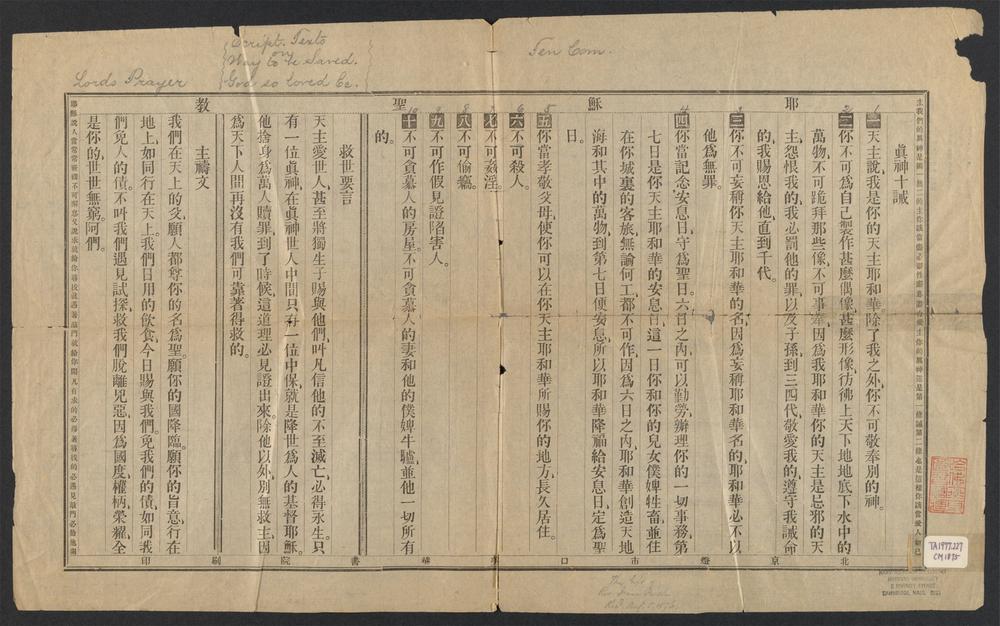 Lords Prayer
Script. Texts
on
Way to be Saved.
God so loved &c.
Ten Com.
耶穌聖教
主我們的眞神是獨一無二的主你該當盡必盡性盡意盡力愛主你的眞神這是第一條誡第二條也是這樣你該當愛人如己
眞神十誡
一 天主說我是你的天主耶和華。除了我之外、你不可敬奉別的神。
二 你不可爲自己製作甚麼偶像、甚麼形像彷彿上天下地、地底下水中的
萬物、不可跪拜那些像、不可事奉、因爲我耶和華你的天主是忌邪的天
主、怨恨我的、我必罰他的罪、以及子孫到三四代、敬愛我的、遵守我誡命
的、我賜恩給他、直到千代。
三 你不可妄稱你天主耶和華的名、因爲妄稱耶和華名的、耶和華必不以
他爲無罪。
四 你當記念安息日、守爲聖日。六日之內、可以勤勞辦理你的一切事務、第
七日是你天主耶和華的安息日、這一日你和你的兒女僕婢牲畜、並住
在你城裏的客旅、無論何工都不可作、因爲六日之內、耶和華創造天地
海和其中的萬物、到第七日便安息、所以耶和華降福給安息日、定爲聖
日。
五 你當孝敬父母、使你可以在你天主耶和華所賜你的地方、長久居住。
六 不可殺人。
七 不可姦淫。
八 不可偷竊。
九 不可作假見證陷害人。
十 不可貪慕人的房屋。不可貪慕人的妻和他的僕婢牛驢、並他一切所有
的。
救世要言
天主愛世人、甚至將獨生子賜與他們、叫凡信他的不至滅亡、必得永生。只
有一位眞神、在眞神世人中間、只有一位中保、就是降世爲人的基督耶穌。
他捨身爲萬人贖罪、到了時候、這道理必見證出來。除他以外、別無救主、因
爲天下人間、再沒有我們可靠著得救的。
主禱文
我們在天上的父、願人都尊你的名爲聖。願你的國降臨。願你的旨意行在
地上、如同行在天上。我們日用的飲食、今日賜與我們。免我們的債、如同我
們免人的債。不叫我們遇見試探、救我們脫離兇惡、因爲國度、權柄、榮耀、全
是你的、世世無窮。阿們。
北京燈市口美華書院刷印
TA1977.227
CM 1875